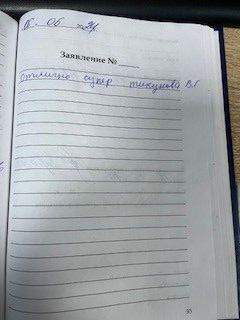 06
Заявление №
отлично супер тикунова В.Г
95